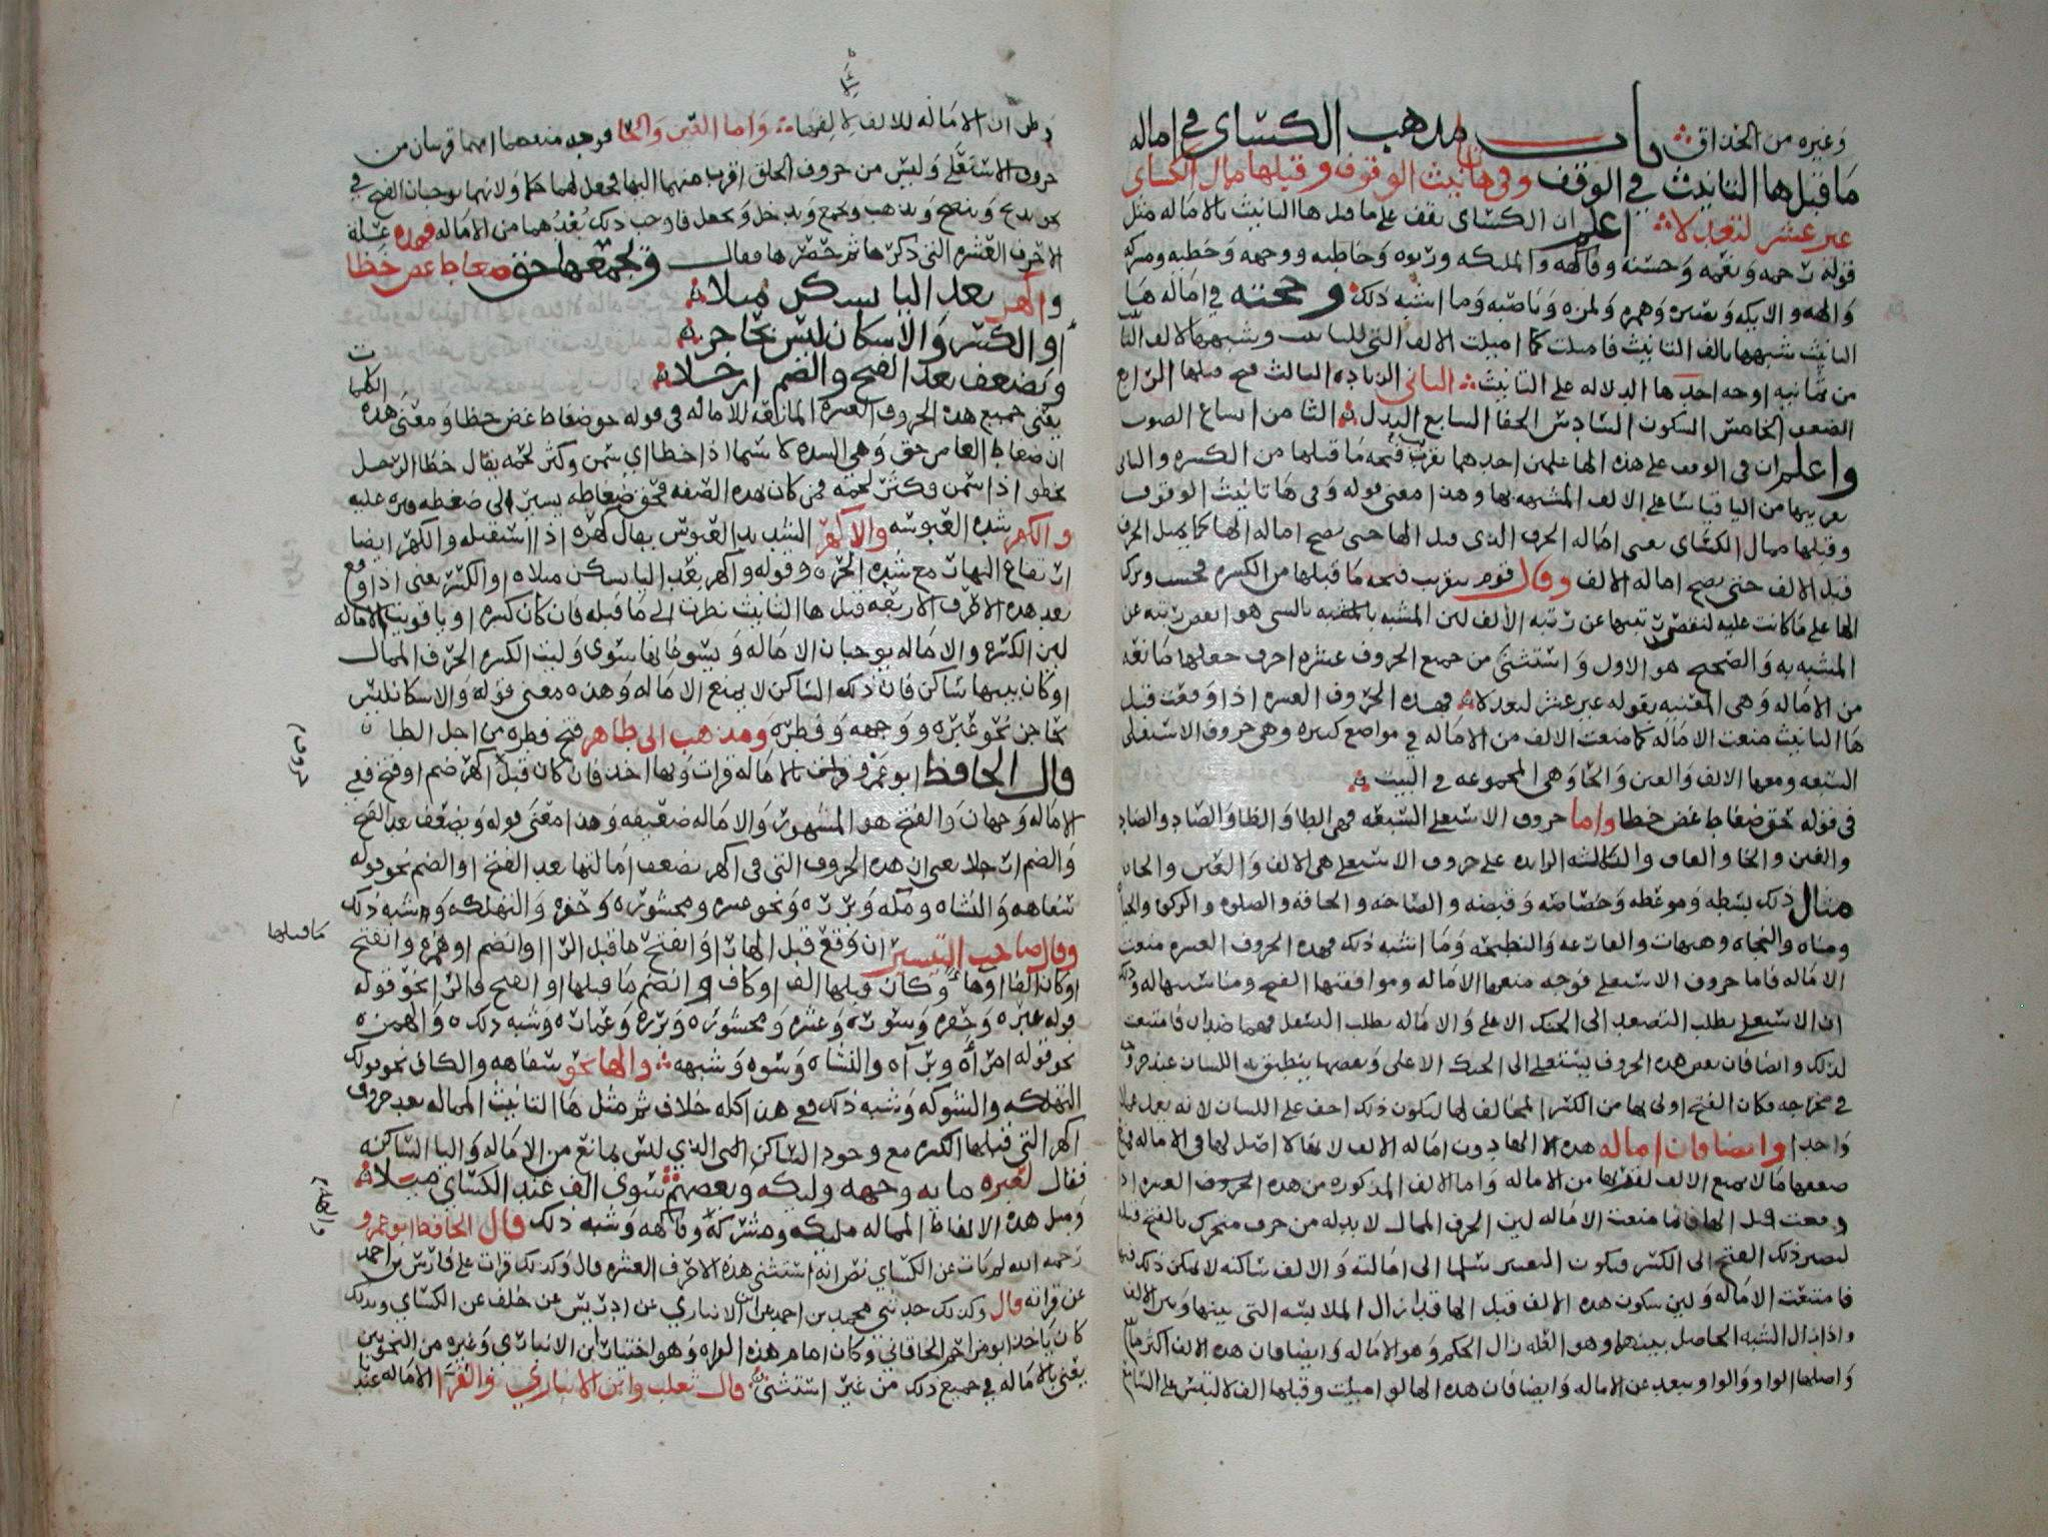 وغيره من الحذاق باب مذهب الكسائي في اماله
ما قبل ها التانيث في الوقف وفي ها تانيث الوقوف وقبلها ممال الكسائي
غير عشر ليعدلا اعلم ان الكسائي يقف على ما قبل ها التانيث بالاماله مثل
قوله رحمه ونعمه وحسنه وفاكهه والمليكه وربوه وخاطيه ووجهه وخطيه ومريه
والهه والايكه وهمزه ولمزه وناصبه وما اشبه ذلك وحجته في اماله ها
التانيث شبهها بالف التانيث فاميلت كما اميلت الالف التي للتانيث وشبهها بالالف
من ثمانيه اوجه احدها الدلاله على التانيث الثاني الزياده الثالث فتح قبلها الرابع
الضعف الخامس السكون السادس الخفا السابع البدل الثامن اتساع الصوت
واعلم ان في الوقف على هذه الها عملين احدهما تقريب فتحه ما قبلها من الكسره والثاني
تقريبها من اليا قياسا على الالف المشبهه بها وهذا معنى قوله وفي ها تانيث الوقوف
وقبلها ممال الكسائي يعني اماله الحرف الذي قبل الها حتى يصح اماله الها كما يميل الحرف
قبل الالف حتى يصح اماله الالف وقال قوم بتقريب فتحه ما قبلها من الكسره فحسب وترك
الها على ما كانت عليه لنقص رتبتها عن رتبه الالف لين المشبه بالشي هو انقص رتبه عن
المشبه به والصحيح هو الاول واستثنى من جميع الحروف عشره احرف جعلها مانعه
من الاماله وهي المعنيه بقوله غير عشر ليعدلا فهذه الحروف العشره اذا وقعت قبل
ها التانيث منعت الاماله كما منعت الالف من الاماله في مواضع كثيره وهي حروف الاستعلى
السبعه ومعها الالف والعين والحا وهي المجموعه في البيت
في قوله حق ضغاط عص خظا واما حروف الاستعلى السبعه فهي الطا والظا والصاد والضاد
والغين والخا والقاف والثلاثه الزايده على حروف الاستعلى هي الالف والعين والحا
مثال ذلك بسطه وموعظه وخصاصه وقبضه والصاخه والحاقه والصلوه والزكوه والحياه
ومناه والنجاه وهيهات والقارعه والنطيحه وما اشبه ذلك فهذه الحروف العشره منعت
الاماله فاما حروف الاستعلى فوجه منعها الاماله وموافقتها الفتح ومناسبتها له وذلك
ان الاستعلى يطلب التصعد الى الحنك الاعلى والاماله يطلب التسفل فهما ضدان فامتنعت
لذلك وايضا فان بعض هذه الحروف يستعلى الى الحنك الاعلى وبعضها ينطبق به اللسان عند حروفه
في مخارجه فكان الفتح اولى بها من الكسر المخالف لها ليكون ذلك اخف على اللسان لانه يعمل عملا
واحدا وايضا فان اماله هذه الها دون اماله الالف لانها لا اصل لها في الاماله فمع
ضعفها ما لا يمنع الالف لقوتها من الاماله واما الالف المذكوره من هذه الحروف العشره اذا
وقعت قبل الها فانما منعت الاماله لين الحرف الممال لا بد له من حرف متحرك بالفتح قبله
ليصير ذلك الفتح الى الكسر فيكون التغيير سلما الى امالته والالف ساكنه لا يمكن ذلك فيها
فامتنعت الاماله ولين سكون هذه الالف قبل الها قد ازال الملابسه التي بينها وبين الالف
واذا زال الشبه الحاصل بينهما وهو العله زال الحكم وهو الاماله وايضا فان هذه الالف اكثر ما
واصلها الواو والواو تبعد عن الاماله وايضا فان هذه الها لو اميلت وقبلها الف لالتبس على السامع
وظن ان الاماله للالف لا لها واما العين والحا فوجه منعهما انهما قريبان من
حروف الاستعلى وليس من حروف الحلق اقرب منهما اليها فجعل لهما حكما ولانهما يوجبان الفتح في
نحو يدبح وينصح ويذهب ويجمع ويدخل ويجعل فاوجب ذلك بعدهما من الاماله فهذه علة
الاحرف العشره التي ذكرها ثم حصرها فقال ويجمعها حق ضغاط عص خظا
واكهر بعد اليا يسكن ميلا
او الكسر والاسكان ليس بحاجز
ويضعف بعد الفتح والضم ارجلا
يعني جميع هذه الحروف العشره المانعه للاماله في قوله حق ضغاط عص خظا ومعنى هذه
الكلمات
ان ضغاط العاص حق وهي الشده لا سيما اذا خظا اي سمن وكثر لحمه يقال خظا الرجل
يخظو اذا سمن وكثر لحمه فمن كان بهذه الصفه فحق ضغاطه يسير الى ضغطه قبره عليه
والكهر شده العبوسه والاكهر الشديد العبوس يقال كهره اذا استقبله والكهر ايضا
ارتفاع النهار مع شده الحر وقوله واكهر بعد اليا يسكن ميلا او الكسر يعني اذا وقع
بعد هذه الاحرف الاربعه قبل ها التانيث نظرت الى ما قبله فان كان كسره او يا قويت الاماله
لين الكسره والاماله يوجبان الاماله ويسوغانها سوى وليت الكسره الحرف الممال
او كان بينهما ساكن فان ذلك الساكن لا يمنع الاماله وهذه معنى قوله والاسكان ليس
بحاجز نحو عبره ووجهه وفطره ومذهب ابي طاهر فتح فطره من اجل الطا
حروف
قال الحافظ ابو عمرو قراتها بالاماله قرات وبها اخذ فان كان قبل اكهر ضم او فتح ففي
الاماله وجهان والفتح هو المشهور والاماله ضعيفه وهذا معنى قوله ويضعف بعد الفتح
والضم ارجلا يعني ان هذه الحروف التي في اكهر يضعف امالتها بعد الفتح او الضم نحو قوله
سفاهه والنشاه ومكه وبرره ونحو عسره ومحشوره وحفره والتهلكه وشبه ذلك
ما قبلها
وقال صاحب التيسير ان وقع قبل الها را وانفتح ما قبل الرا او انضم او همزه وانفتح
او كان الفا او ها وكان قبلها الف او كاف وانضم ما قبلها او انفتح فالرا نحو قوله
قوله عبره وحفره وسوره وعشره ومحشوره وبرره وعماره وشبه ذلك والهمزه
نحو قوله امراه وبراه والنشاه وسوه وشبهه والها نحو سفاهه والكاف نحو قولك
التهلكه والشوكه وشبه ذلك ففي هذا كله خلاف ثم مثل ها التانيث المماله بعد حروف
اكهر التي قبلها الكسر مع وجود الساكن الذي ليس بمانع من الاماله واليا الساكنه
فقال لعبره مايه وجهه وليكه وبعضهم سوى الف عند الكسائي ميلا
والها
ومثل هذه الالفاظ المماله مليكه ومشركه وفاكهه وشبه ذلك قال الحافظ ابو عمرو
رحمه الله لم يات عن الكسائي نص انه استثنى هذه الاحرف العشره قال وكذلك قرات على فارس بن احمد
عن قراته قال وكذلك حدثني محمد بن احمد عن ابن الانباري عن ادريس عن خلف عن الكسائي وبذلك
كان ياخذ ابو مزاحم الخاقاني وكان امام هذه القراه وهو اختيار ابن الانباري وغيره من النحويين
يعني بالاماله في جميع ذلك من غير استثنى قال ثعلب وابن الانباري والفرا الاماله عند